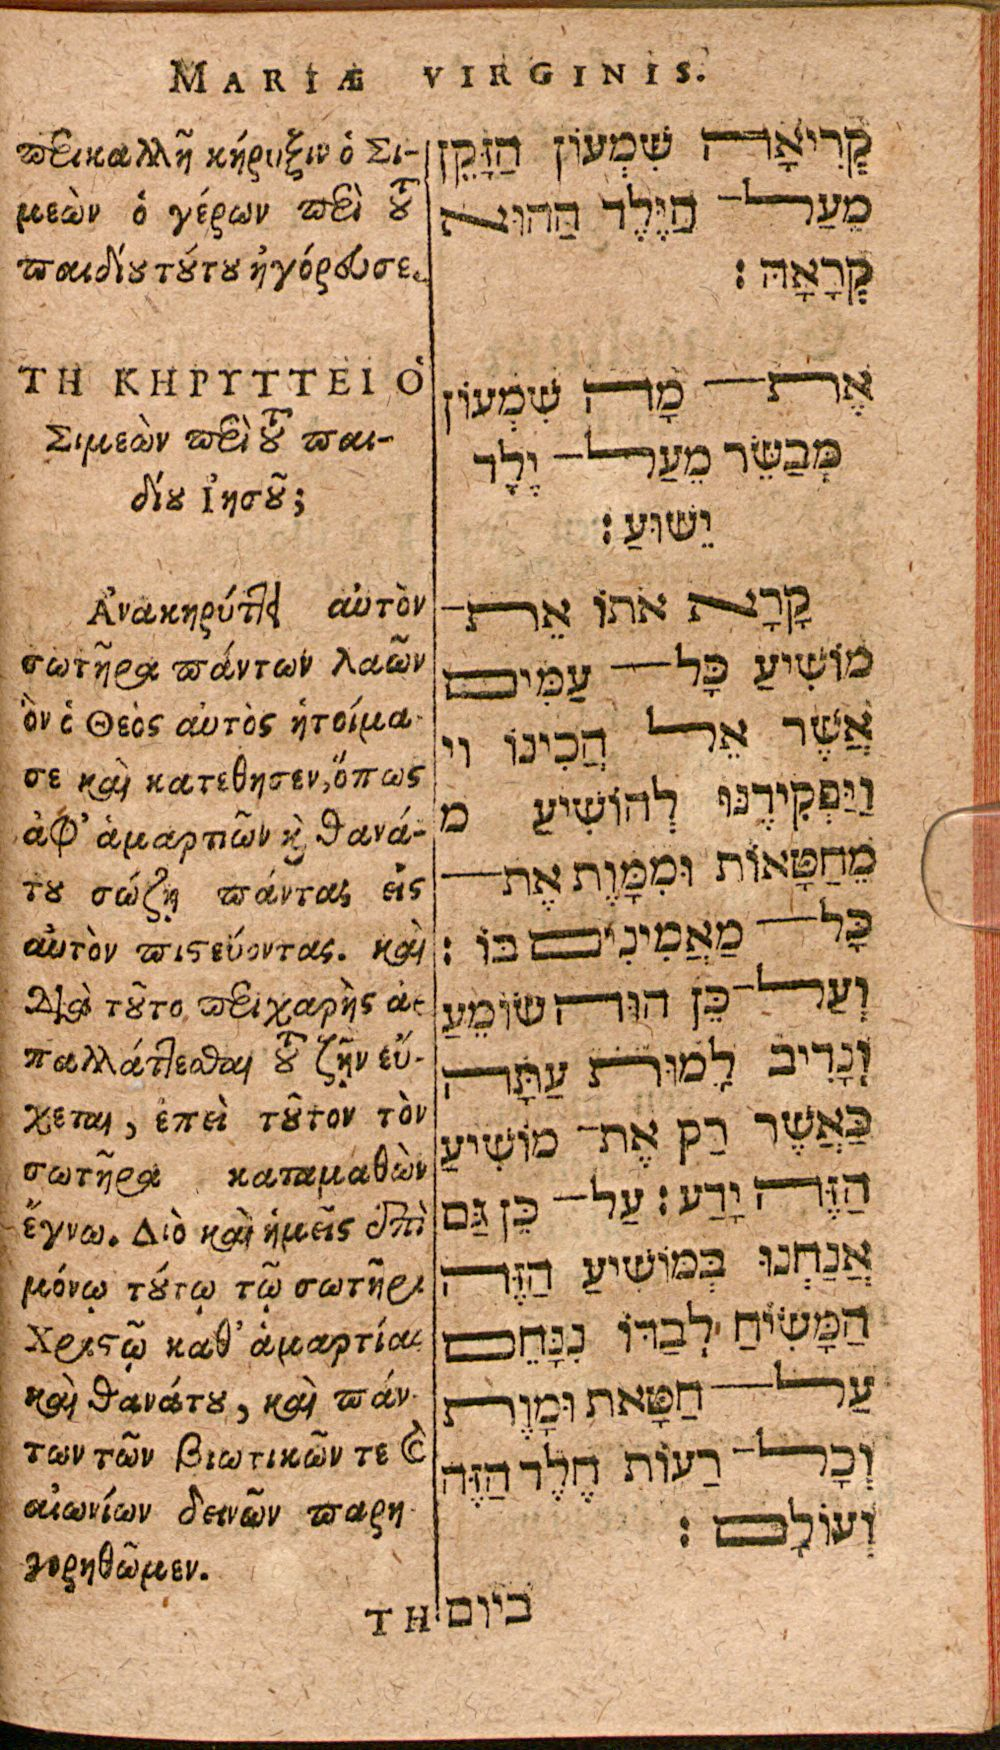 MARIÆ VIRGINIS.
περικαλλῆ κήρυξιν ὁ Σι-
μεὼν ὁ γέρων περὶ τοῦ
παιδίου τούτου ἠγόρευσε.
ΤΗ ΚΗΡΥΤΤΕΙ Ὁ
Σιμεὼν περὶ τοῦ παι-
δίου Ἰησοῦ;
Ἀνακηρύττει αὐτὸν
σωτῆρα πάντων λαῶν
ὃν ὁ Θεὸς αὐτὸς ἡτοίμα-
σε καὶ κατεθησεν, ὅπως
ἀφ' ἁμαρτιῶν καὶ θανά-
του σώζῃ πάντας εἰς
αὐτὸν πιστεύοντας. καὶ
Διὰ τοῦτο περιχαρὴς ἀ-
παλλάττεσθαι τοῦ ζῆν εὔ-
χεται, ἐπεὶ τοῦτον τὸν
σωτῆρα καταμαθὼν
ἔγνω. Διὸ καὶ ἡμεῖς ἐπὶ
μόνῳ τούτῳ τῷ σωτῆρι
Χριστῷ καθ' ἁμαρτίας
καὶ θανάτου, καὶ πάν-
των τῶν βιωτικῶν τε καὶ
αἰωνίων δεινῶν παρη-
γορηθῶμεν.
ΤΗ
קְרִיאָה שִׁמְעוֹן הַזָּקֵן
מֵעַל־ הַיֶּלֶד הַהוּא
קָרָאָהּ:
אֶת־ מָה שִׁמְעוֹן
מְבַשֵּׂר מֵעַל־ יֶלֶד
יֵשׁוּעַ:
קָרָא אֹתוֹ אֵת־
מוֹשִׁיעַ כָּל־ עַמִּים
אֲשֶׁר אֵל הֲכִינוֹ וי
וַיַּפְקִידֶנּוּ לְהוֹשִׁיעַ מ
מֵחַטָּאוֹת וּמִמָּוֶת אֶת־
כָּל־ מַאֲמִינִים בּוֹ:
וְעַל־ כֵּן הוּה שׂוֹמֵעַ
וְנָדִיב לָמוּת עַתָּה
כַּאֲשֶׁר רַק אֶת־ מוֹשִׁיעַ
הַזֶּה יָדַע: עַל־ כֵּן גַּם
אֲנַחְנוּ בְּמוֹשִׁיעַ הַזֶּה
הַמָּשִׁיחַ לְבַדּוֹ נִנָּחֵם
עַל־ חַטָּאת וּמָוֶת
וְכָל־ רַעוֹת חֶלֶד הַזֶּה
וְעוֹלָם:
ביום